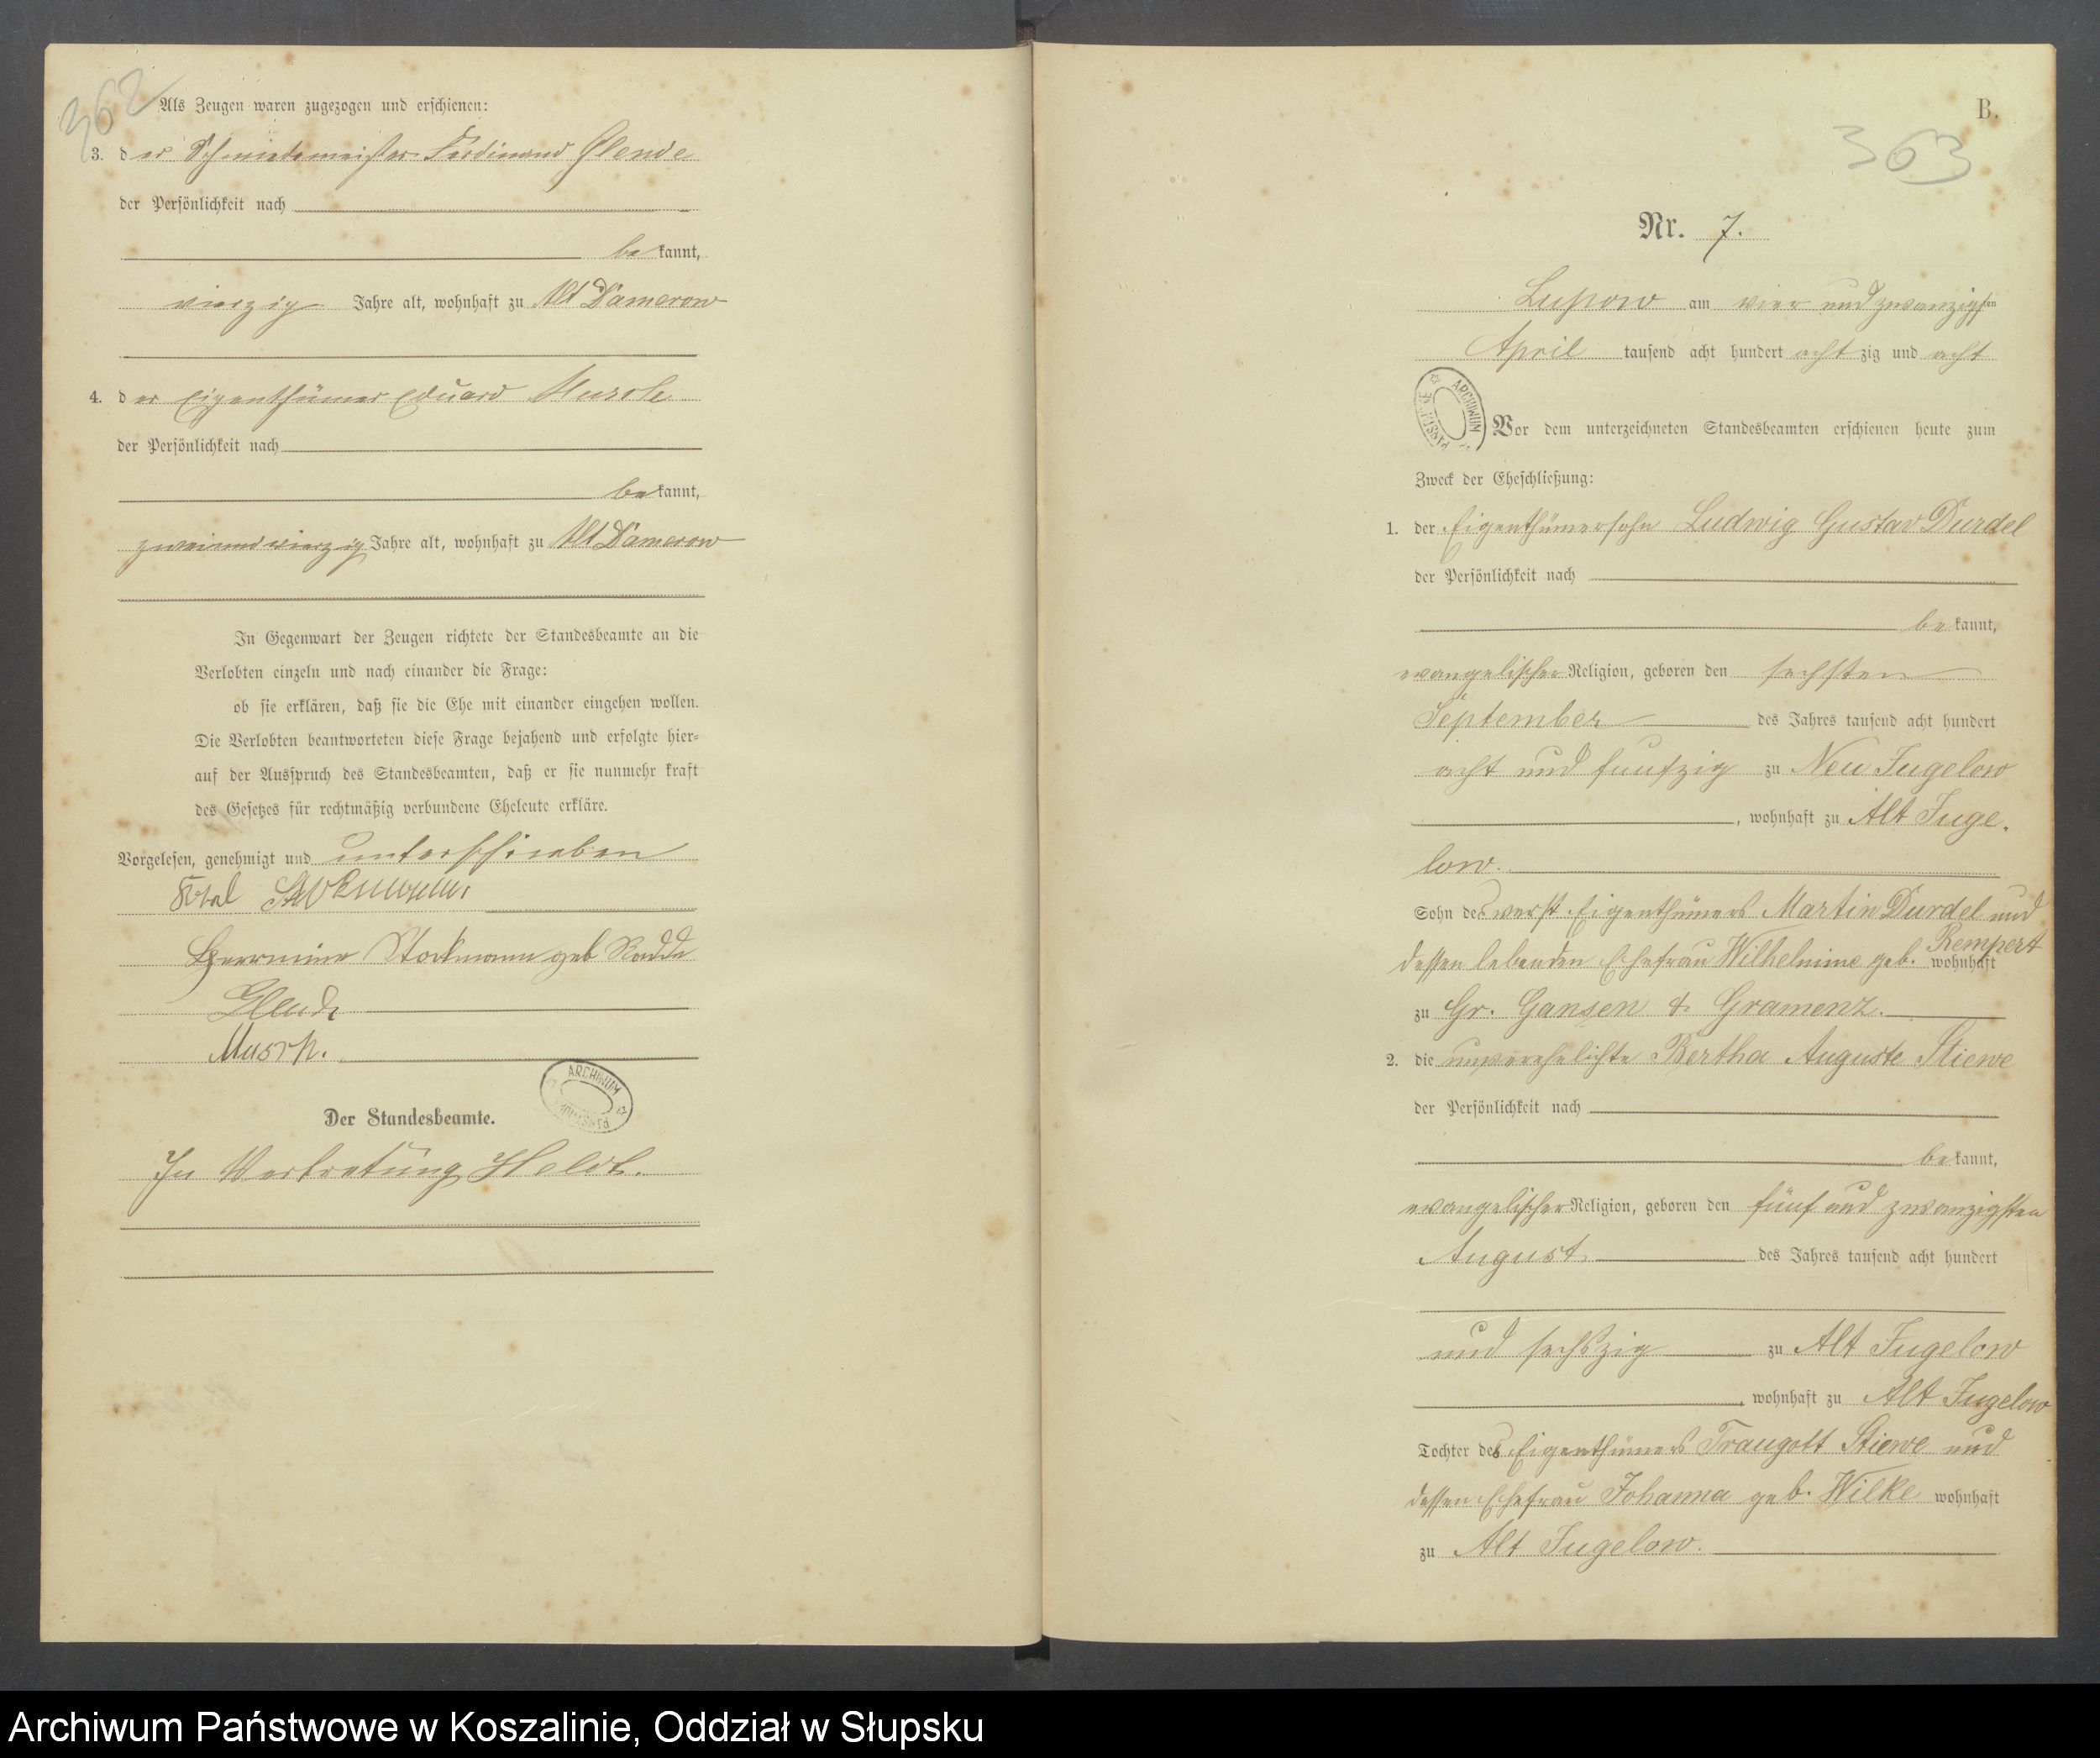 362
Als Zeugen waren zugezogen und erschienen:
3. der Schmiedemeister Ferdinand Glende
der Persönlichkeit nach
bekannt,
vierzig Jahre alt, wohnhaft zu Alt Damerow
4. der Eigenthümer Eduard
der Persönlichkeit nach
bekannt,
zweiundvierzig Jahre alt, wohnhaft zu Alt Damerow
In Gegenwart der Zeugen richtete der Standesbeamte an die
Verlobten einzeln und nach einander die Frage:
ob sie erklären, daß sie die Ehe mit einander eingehen wollen.
Die Verlobten beantworteten diese Frage bejahend und erfolgte hier-
auf der Ausspruch des Standesbeamten, daß er sie nunmehr kraft
des Gesetzes für rechtmäßig verbundene Eheleute erkläre.
Vorgelesen, genehmigt und unterschrieben
Herrmine Stockmann geb Radde
Glende
Der Standesbeamte.
In Vertretung
ARCHIWUM
B.
363
Nr. 7.
Lupow am vier und zwanzigsten
April tausend acht hundert achtzig und acht
ARCHIWUM
Vor dem unterzeichneten Standesbeamten erschienen heute zum
Zweck der Eheschließung:
1. der Eigenthümersohn Ludwig Gustav Durdel
der Persönlichkeit nach
bekannt,
evangelischer Religion, geboren den sechsten
September des Jahres tausend acht hundert
acht und funfzig zu Neu Jugelow
, wohnhaft zu Alt Juge-
low.
Sohn des verst. Eigenthümers Martin Durdel und
dessen lebenden Ehefrau Wilhelmine geb. Rempert wohnhaft
zu Gr. Gansen & Gramenz.
2. die unverehelichte Bertha Auguste Stiewe
der Persönlichkeit nach
bekannt,
evangelischer Religion, geboren den fünf und zwanzigsten
August des Jahres tausend acht hundert
und sechszig zu Alt Jugelow
, wohnhaft zu Alt Jugelow
Tochter des Eigenthümers Traugott Stiewe und
dessen Ehefrau Johanna geb. Wilke wohnhaft
zu Alt Jugelow.
Archiwum Państwowe w Koszalinie, Oddział w Słupsku